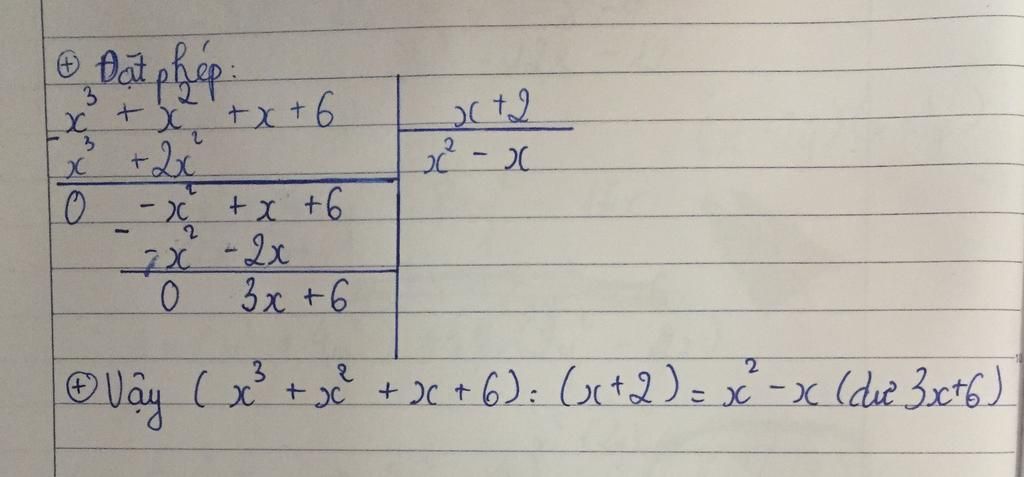 ⊕ Đặt phép:
x³ + x² + x + 6 | x + 2
- x³ + 2x² | x² - x
0 - x² + x + 6
- - x² - 2x
0 3x + 6
⊕ Vậy (x³ + x² + x + 6) : (x + 2) = x² - x (dư 3x+6)